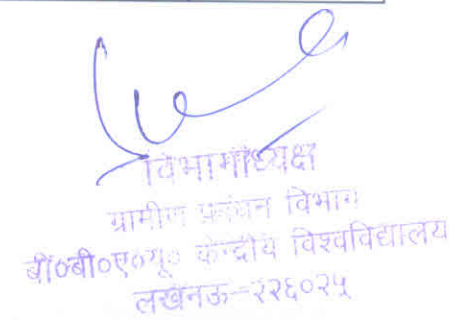 विभागाध्यक्ष
ग्रामीण प्रबंधन विभाग
बी०बी०ए०यू० केन्द्रीय विश्वविद्यालय
लखनऊ-२२६०२५